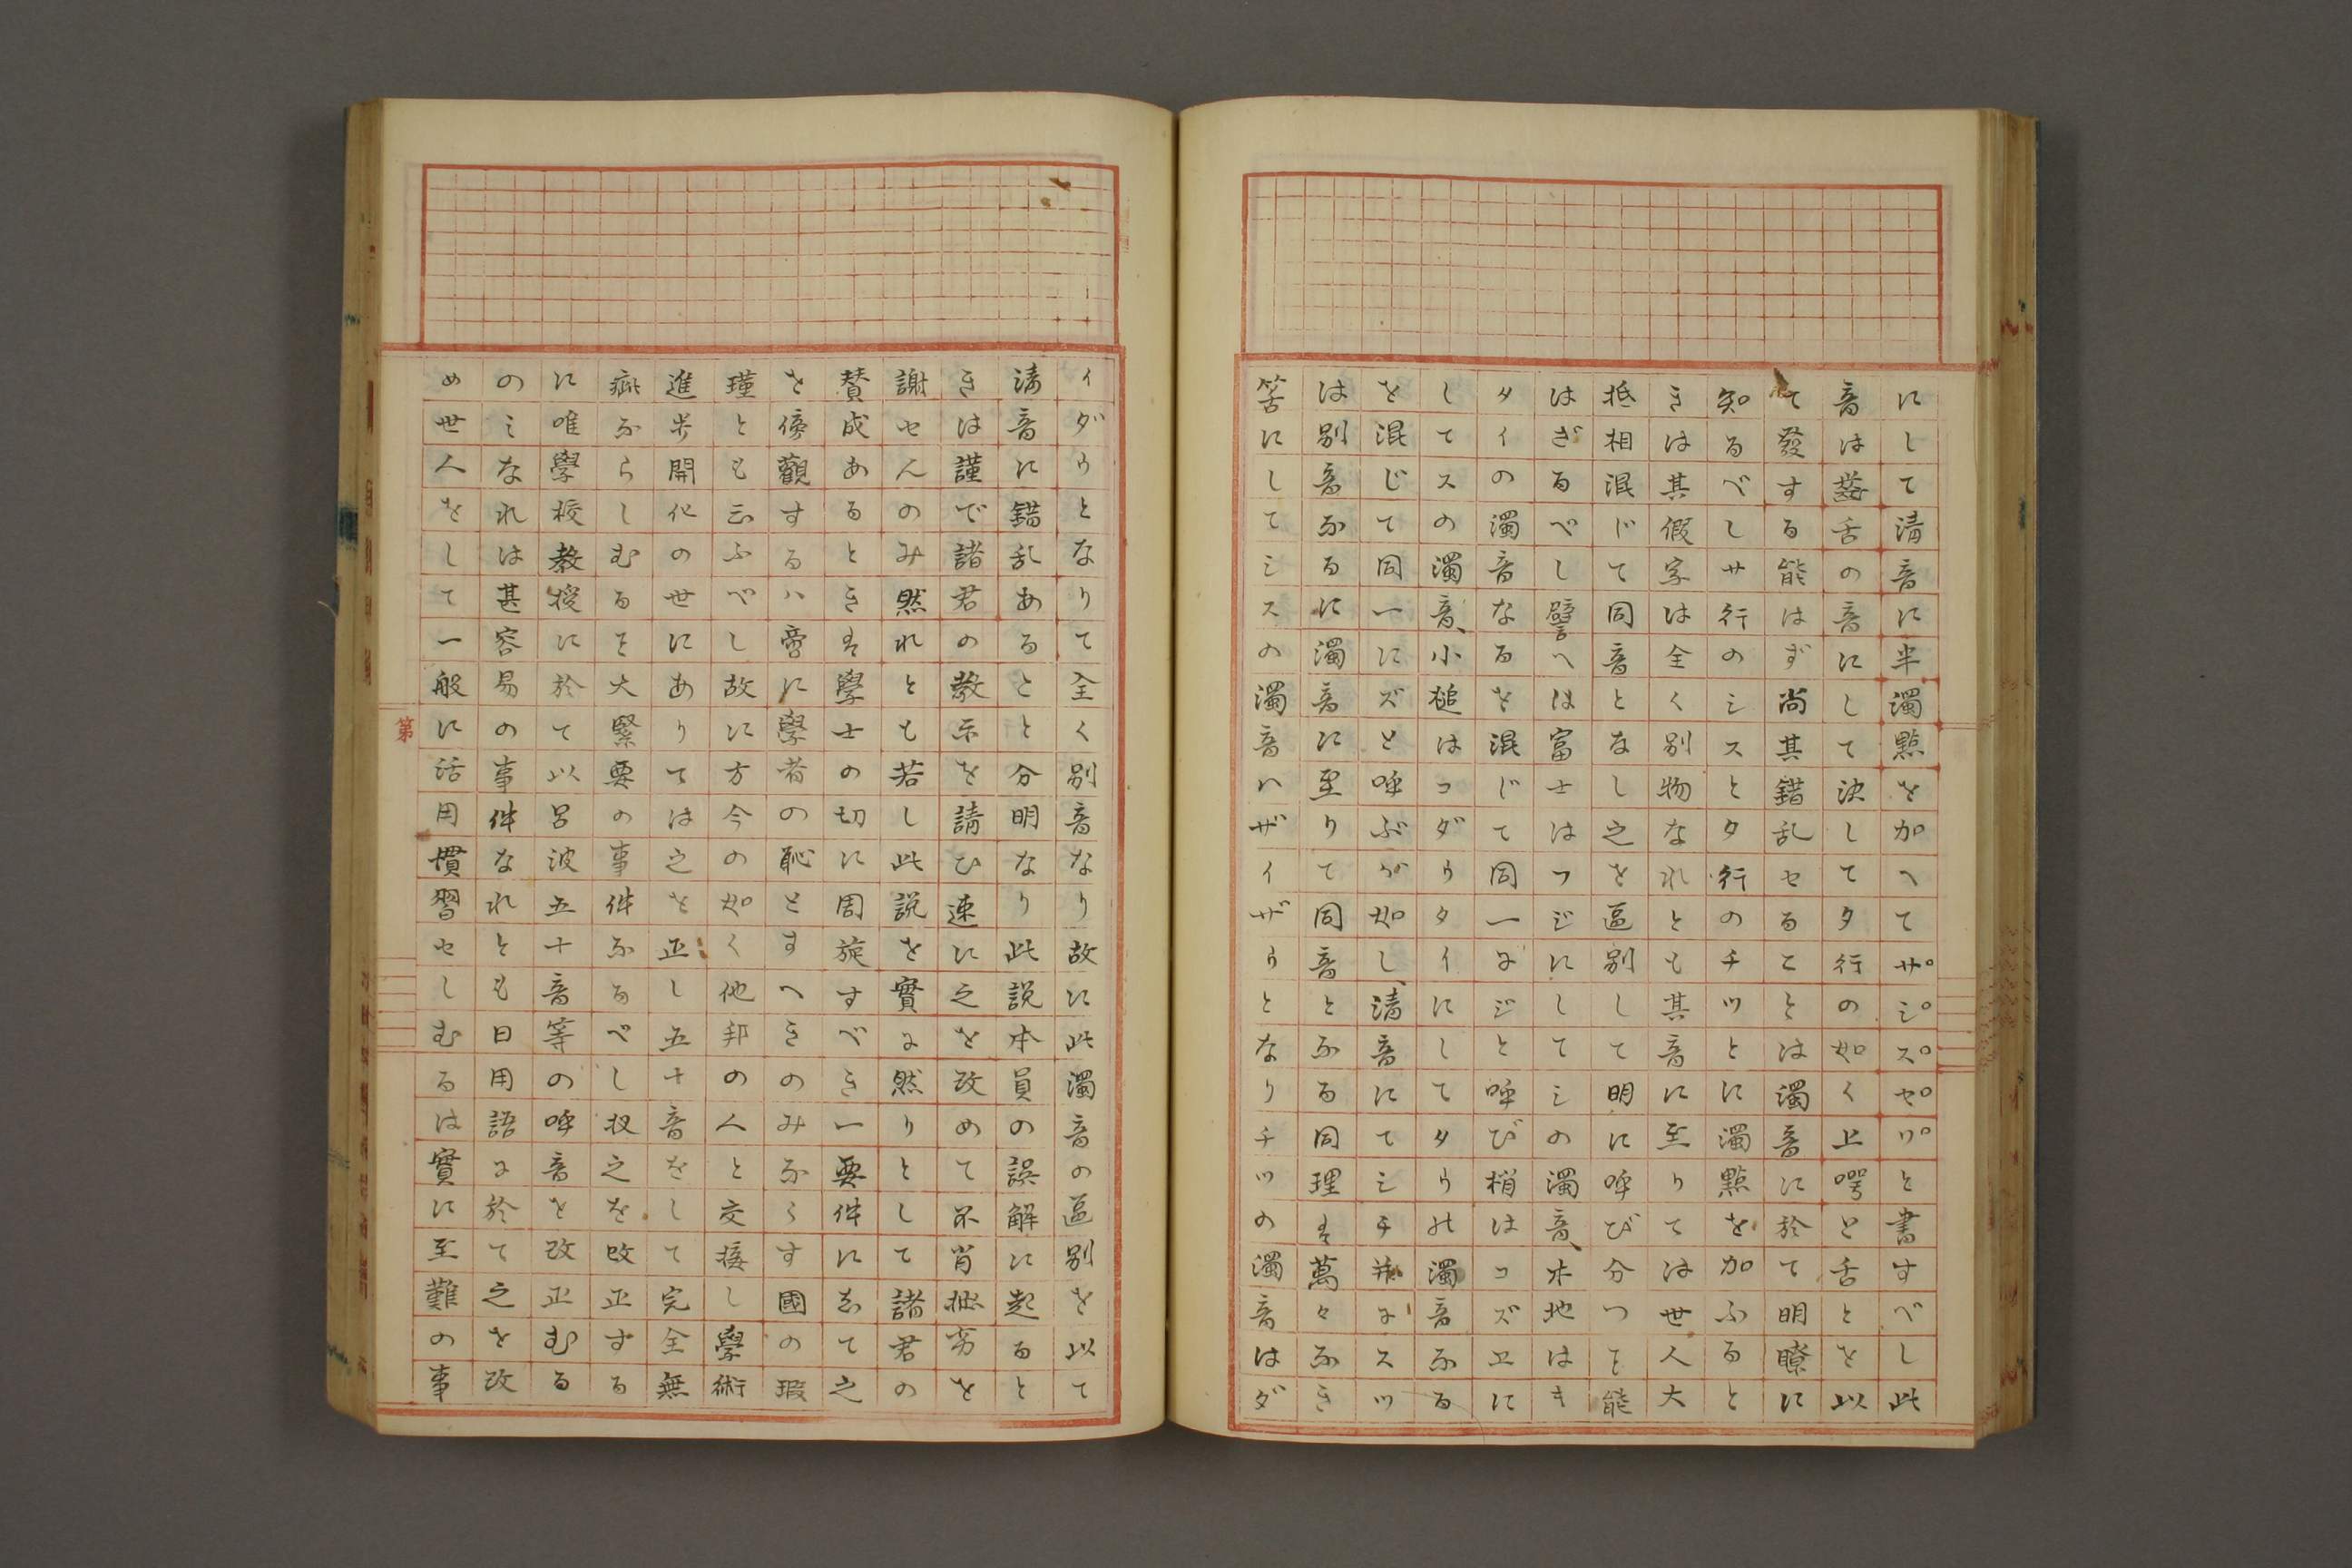 にして清音に半濁點を加へてサ゜シ゜ス゜セ゜ソ゜と書すべし此
音は齒舌の音にして決してタ行の如く上咢と舌とを以
て發する能はず尚其錯乱せることは濁音に於て明瞭に
知るべしサ行のシスとタ行のチツとに濁點を加ふると
きは其假字は全く別物なれとも其音に至りては世人大
抵相混じて同音となし之を區別して明に呼び分つ𪜈能
はざるべし譬へは富士はフジにしてシの濁音、木地はキ
タイの濁音なるを混じて同一にジと呼び梢はコズヱに
してスの濁音、小槌はコダウタイにしてタウの濁音なる
を混じて同一にズと呼ぶが如し、清音にてシチ并にスツ
は別音なるに濁音に至りて同音となる同理は萬々なき
筈にしてシスの濁音ハザイザウとなりチツの濁音はダ
イダウとなりて全く別音なり故に此濁音の區別を以て
清音に錯乱あること分明なり此説本員の誤解に起ると
きは謹で諸君の教示を請ひ速に之を改めて不肖拙劣を
謝せんのみ然れとも若し此説を實に然りとして諸君の
賛成あるときは學士の切に周旋すべき一要件にして之
を傍觀するハ啻に學者の恥とすへきのみならす國の瑕
瑾とも云ふべし故に方今の如く他邦の人と交接し學術
進歩開化の世にありては之を正し五十音をして完全無
疵ならしむるは大緊要の事件なるべし扨之を改正する
に唯學校教授に於て以呂波五十音等の呼音を改正むる
のみなれは甚容易の事件なれとも日用語に於て之を改
め世人をして一般に活用慣習せしむるは實に至難の事
第